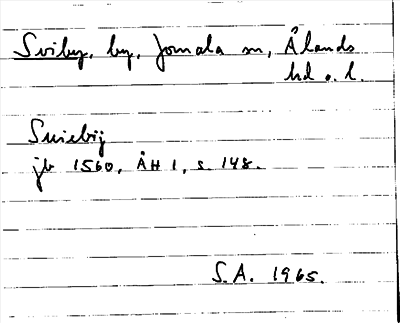 Sviby, by, Jomala sn, Ålands
hd o. l.
Suiebÿ
jb 1560, ÅH 1, s. 148.
S.A. 1965.